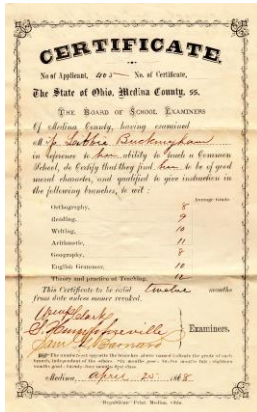 CERTIFICATE.
No of Applicant, 405 No. of Certificate,
The State of Ohio, Medina County, ss.
THE BOARD OF SCHOOL EXAMINERS
Of Medina County, having examined
M Buckingham
in reference to her ability to teach a Common
School, do Certify that they find her to be of good
moral character, and qualified to give instruction in
the following branches, to wit:
Average Grade
Orthography, 8
Reading, 9
Writing, 10
Arithmetic, 11
Geography, 8
English Grammar, 10
Theory and practice of Teaching, 12
This Certificate to be valid twelve months
from date unless sooner revoked.
Clark
Examiners.
Sam Barnard
Medina, April 25 1868
Republican Print, Medina, Ohio.